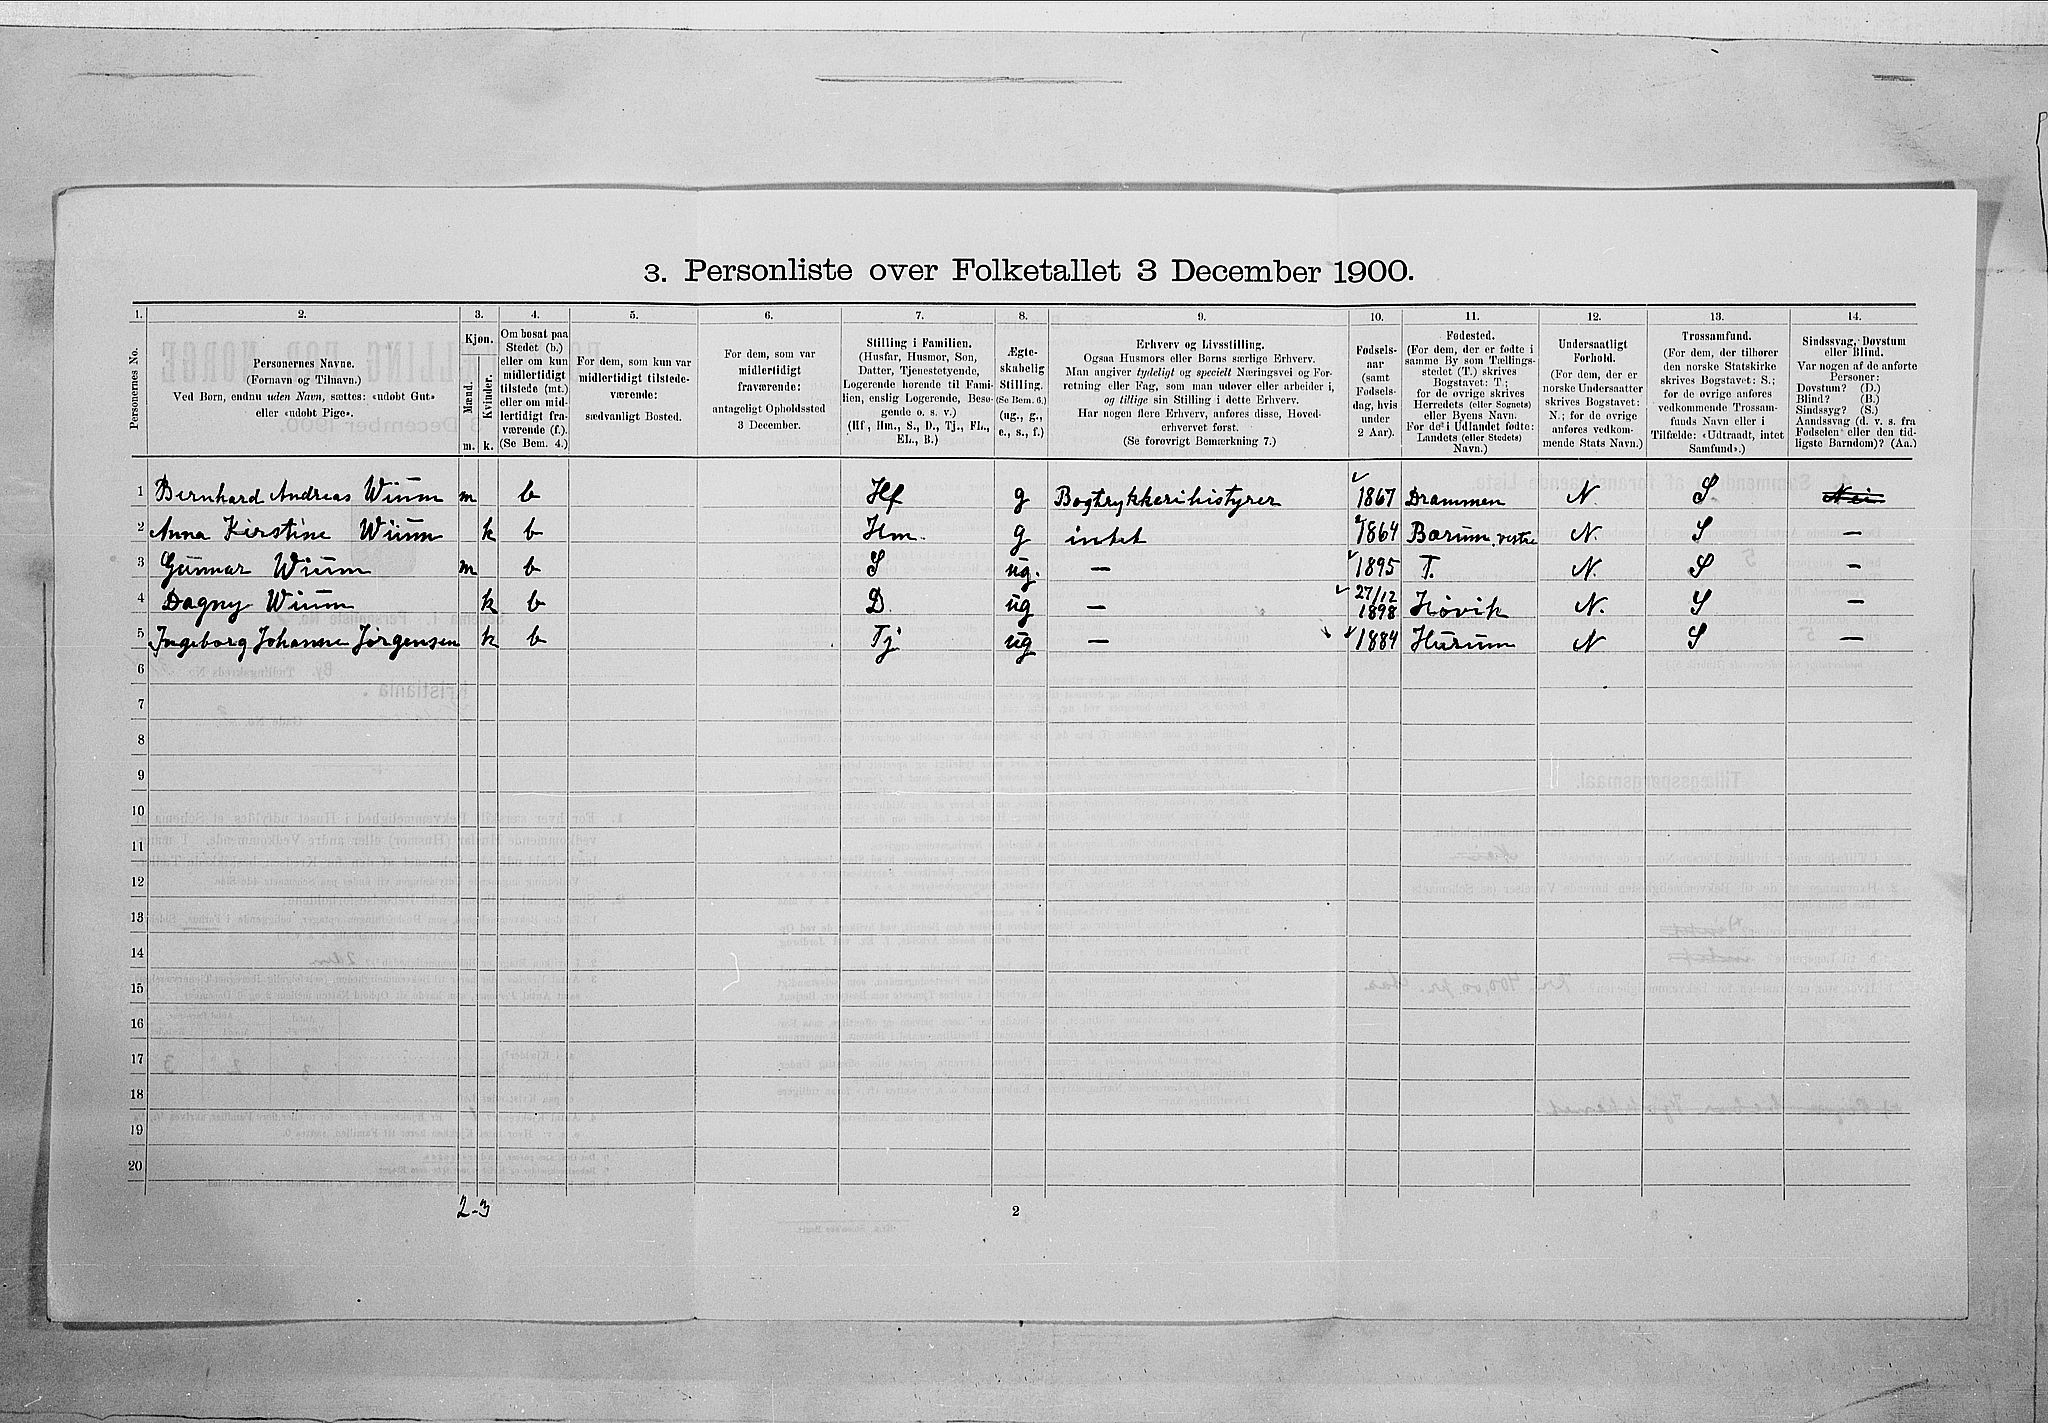 3. Personliste over Folketallet 3 December 1900.
1. 2. 3. 4. 5. 6. 7. 8. 9. 10. 11. 12. 13. 14.
Personernes No.
Personernes Navne.
(Fornavn og Tilnavn.)
Ved Børn, endnu uden Navn, sættes: «udøbt Gut»
eller «udøbt Pige».
Kjøn.
Mænd.
Kvinder.
m. k.
Om bosat paa
Stedet (b.)
eller om kun
midlertidigt
tilstede (mt.)
eller om mid-
lertidigt fra-
værende (f.).
(Se Bem. 4.)
For dem, som kun var
midlertidigt tilstede-
værende:
sædvanligt Bosted.
For dem, som var
midlertidigt
fraværende:
antageligt Opholdssted
3 December.
Stilling i Familien.
(Husfar, Husmor, Søn,
Datter, Tjenestetyende,
Logerende hørende til Fami-
lien, enslig Logerende, Besø-
gende o. s. v.)
(Hf., Hm., S., D., Tj., FL.,
EL., B.)
Ægte-
skabelig
Stilling.
(Se Bem. 6.)
(ug., g.,
e., s., f.)
Erhverv og Livsstilling.
Ogsaa Husmors eller Børns særlige Erhverv.
Man angiver tydeligt og specielt Næringsvei og For-
retning eller Fag, som man udøver eller arbeider i,
og tillige sin Stilling i dette Erhverv.
Har nogen flere Erhverv, anføres disse, Hoved-
erhvervet først.
(Se forøvrigt Bemærkning 7.)
Fødsels-
aar
(samt
Fødsels-
dag, hvis
under
2 Aar).
Fødested.
(For dem, der er fødte i
samme By som Tællings-
stedet (T.) skrives
Bogstavet: T.;
for de øvrige skrives
Herredets (eller Sognets)
eller Byens Navn.
For de i Udlandet fødte:
Landets (eller Stedets)
Navn.)
Undersaatligt
Forhold.
(For dem, der er
norske Undersaatter
skrives Bogstavet:
N.; for de øvrige
anføres vedkom-
mende Stats Navn.)
Trossamfund.
(For dem, der tilhører
den norske Statskirke
skrives Bogstavet: S.;
for de øvrige anføres
vedkommende Trossam-
funds Navn eller i
Tilfælde: «Udtraadt, intet
Samfund».)
Sindssvag, Døvstum
eller Blind.
Var nogen af de anførte
Personer:
Døvstum? (D.)
Blind? (B.)
Sindssyg? (S.)
Aandssvag (d. v. s. fra
Fødselen eller den tid-
ligste Barndom)? (Aa.)
1 Bernhard Andreas Wiium m b Hf g Bogtrykkeribistyrer 1867 Drammen N. S Nei
2 Anna Kirstine Wiium k b Hm. g intet 1864 Bærum, vestre N. S —
3 Gunnar Wiium m b S ug. — 1895 T. N. S —
4 Dagny Wiium k b D. ug — 27/12 1898 Høvik N. S —
5 Ingeborg Johanne Jørgensen k b Tj ug — 1884 Hurum N S —
6
7
8
9
10
11
12
13
14
15
16
17
18
19
20
2-3
2